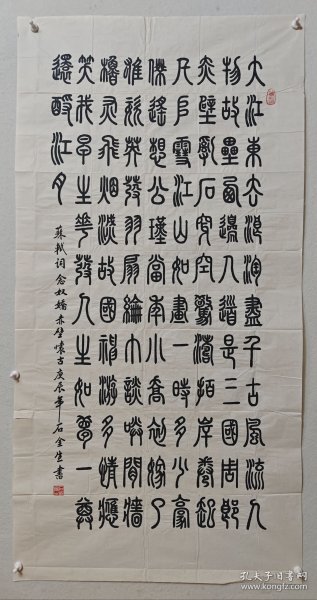 大江東去浪淘盡千古風流人
物故壘西邊人道是三國周郎
赤壁亂石穿空驚濤拍岸卷起
千堆雪江山如畫一時多少豪
傑遙想公瑾當年小喬初嫁了
雄姿英發羽扇綸巾談笑間檣
櫓灰飛煙滅故國神遊多情應
笑我早生華發人生如夢一尊
還酹江月
蘇軾词念奴嬌赤壁懷古庚辰年石金生書
孔夫子旧书网
www.kongfz.com